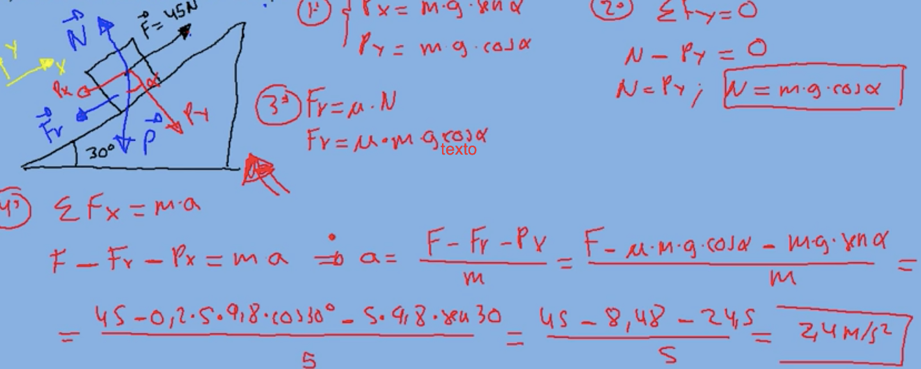 N⃗
F⃗=45N
Y
X
Px
α
Fr⃗
P⃗
Py
30°
1º) { Px = m·g·senα
Py = m·g·cosα
2º) ΣFy=0
N-Py=0
N=Py; N=m·g·cosα
3º) Fr=μ·N
Fr=μ·m·g cosα
texto
4º) ΣFx=m·a
F-Fr-Px=m a ⇒ a= (F-Fr-Px)/m = (F-μ·m·g·cosα-m·g·senα)/m =
= (45-0,2·5·9,8·cos30°-5·9,8·sen30)/5 = (45-8,48-24,5)/5 = 2,4m/s²